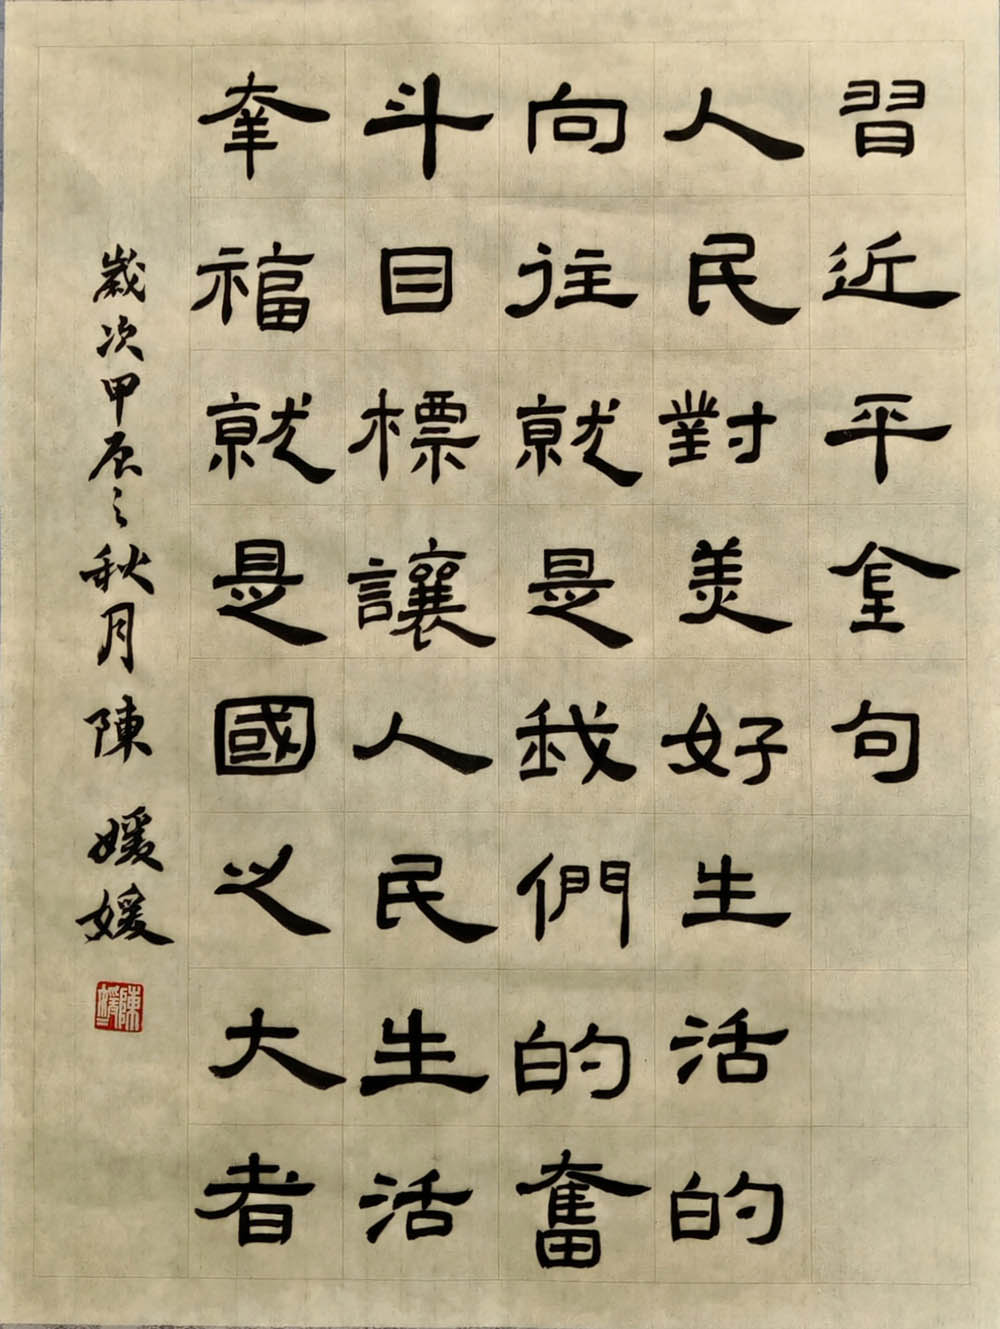 習近平金句
人民對美好生活的
向往就是我們的奮
斗目標讓人民生活
幸福就是國之大者
歲次甲辰之秋月陳媛媛
陳媛